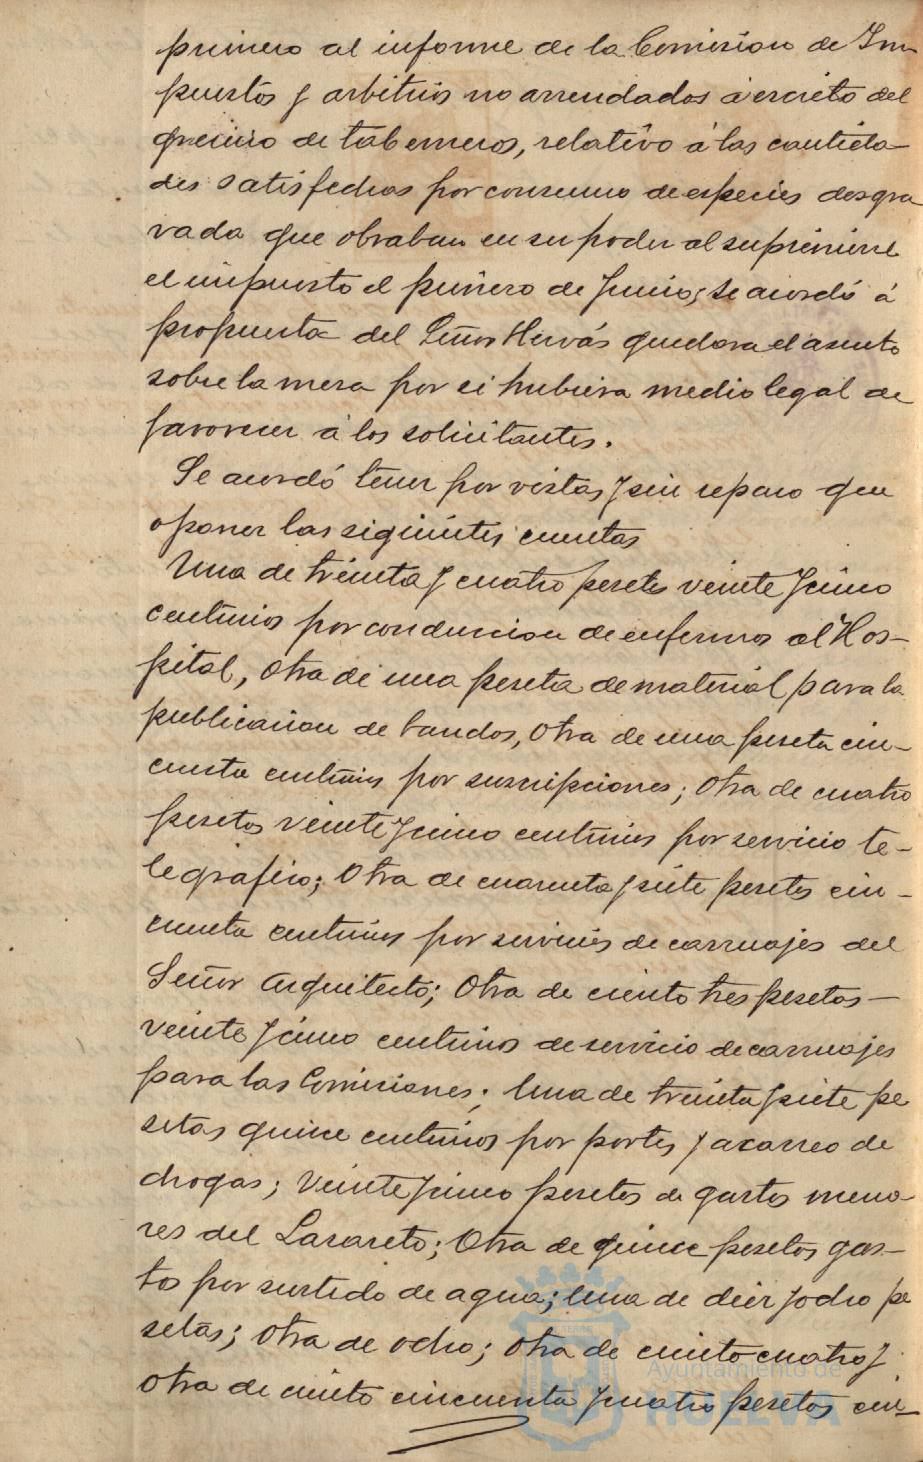 primero al informe de la Comision de Im-
puestos y arbitrios no arrendados á escrito del
gremio de taberneros, relativo á las cantida-
des satisfechas por consumo de especies desgra
vada que obraban en su poder al suprimirse
el impuesto el primero de Junio; se acordó á
propuesta del Señor Hervás quedara el asunto
sobre la mesa por si hubiera medio legal de
favorecer á los solicitantes.
Se acordó tener por vistas y sin reparo que
oponer las siguientes cuentas
Una de treinta y cuatro pesetas veinte y cinco
centimos por conduccion de enfermos al Hos-
pital, Otra de una peseta de material para la
publicacion de bandos, Otra de una peseta cin-
cuenta centimos por suscripciones; Otra de cuatro
pesetas veinte y cinco centimos por servicio te-
legrafico; Otra de cuarenta y siete pesetas cin-
cuenta centimos por servicios de carruajes del
Señor Arquitecto; Otra de ciento tres pesetas -
veinte y cinco centimos de servicio de carruajes
para las Comisiones; Una de treinta y siete pe
setas quince centimos por portes y acarreo de
drogas; Veinte y cinco pesetas de gastos meno-
res del Lazareto; Otra de quince pesetas gas-
tos por surtido de agua; Una de diez y ocho pe
setas; Otra de ocho; Otra de ciento cuatro y
otra de ciento cincuenta y cuatro pesetas cin-
Ayuntamiento de
HUELVA